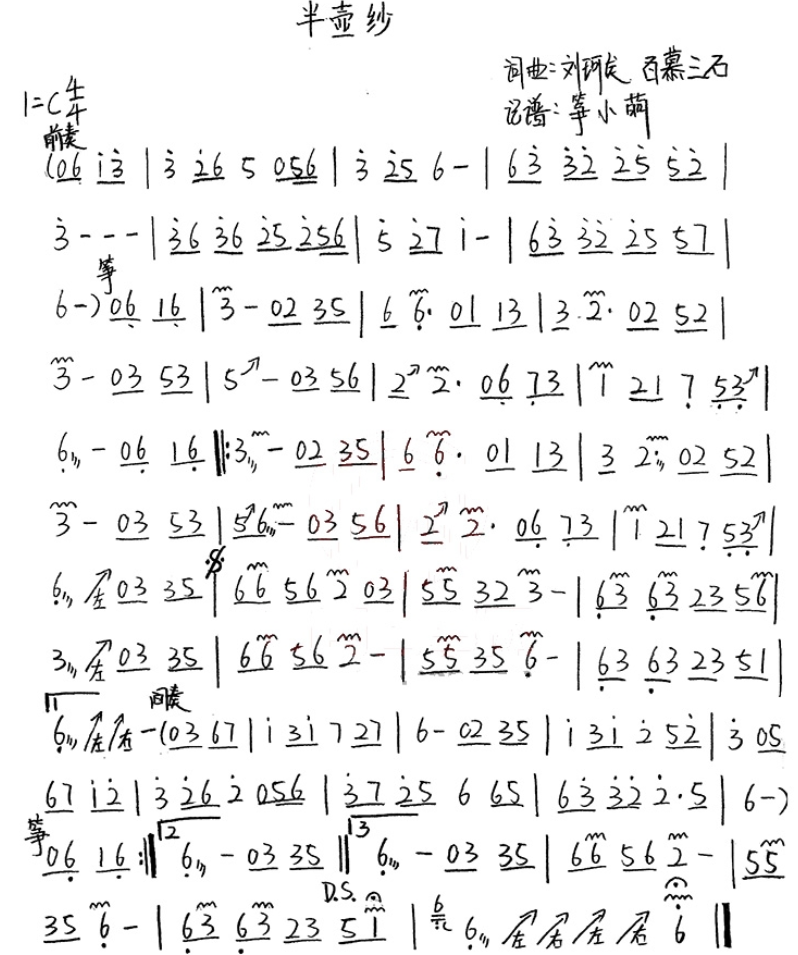 半壶纱
词曲:刘珂矣 百慕三石
1=C 4/4
记谱:筝小萌
前奏
(06 i̇3̇ | 3̇ 2̇6 5 056 | 3̇ 2̇5 6 - | 63̇ 3̇2̇ 2̇5 52̇ |
3̇ - - - | 3̇6 3̇6 2̇5 2̇56 | 5̇ 2̇7 i̇ - | 63̇ 3̇2̇ 2̇5 57 |
筝
6 -) 06̣ 16̣ | 3 - 02 35 | 6 6· 01 13 | 3 2· 02 52 |
3 - 03 53 | 5↗ - 03 56 | 2↗ 2· 06̣ 7̣3 | 1 21 7̣ 5̣3̣↗ |
6̣ - 06̣ 16̣ ‖: 3 - 02 35 | 6 6̣· 01 13 | 3 2 02 52 |
3 - 03 53 | 5↗6 - 03 56 | 2↗ 2· 06̣ 7̣3 | 1 21 7̣ 5̣3̣↗ |
6̣ ↗左 03 35 | 66 56 2 03 | 55 32 3 - | 6̣3 6̣3 23 56 |
3 ↗左 03 35 | 66 56 2 - | 55 35 6̣ - | 6̣3 6̣3 23 51 |
1 间奏
6̣ ↗左 ↗右 - (03 67 | i̇ 3̇i̇ 7 27 | 6 - 02 35 | i̇ 3̇i̇ 2̇ 52̇ | 3̇ 05
67 i̇2̇ | 3̇ 2̇6 2̇ 056 | 3̇7 2̇5 6 65 | 63̇ 3̇2̇ 2̇·5 | 6 -)
筝 2 3
06̣ 16̣ :‖ 6̣ - 03 35 ‖ 6̣ - 03 35 | 66 56 2 - | 55
D.S.
35 6̣ - | 6̣3 6̣3 23 51 | 6̣ ↗左 ↗右 ↗左 ↗右 6 ‖